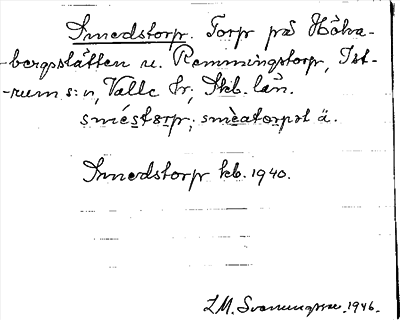 Smedstorp. Torp på Höka-
-bergsslätten u. Remmingstorp, Ist-
-rum s:n, Valle hr, Skb. län.
sméstərp; smèatorpət ä.
Smedstorp kb. 1940.
L.M. Svanungsson 1946.